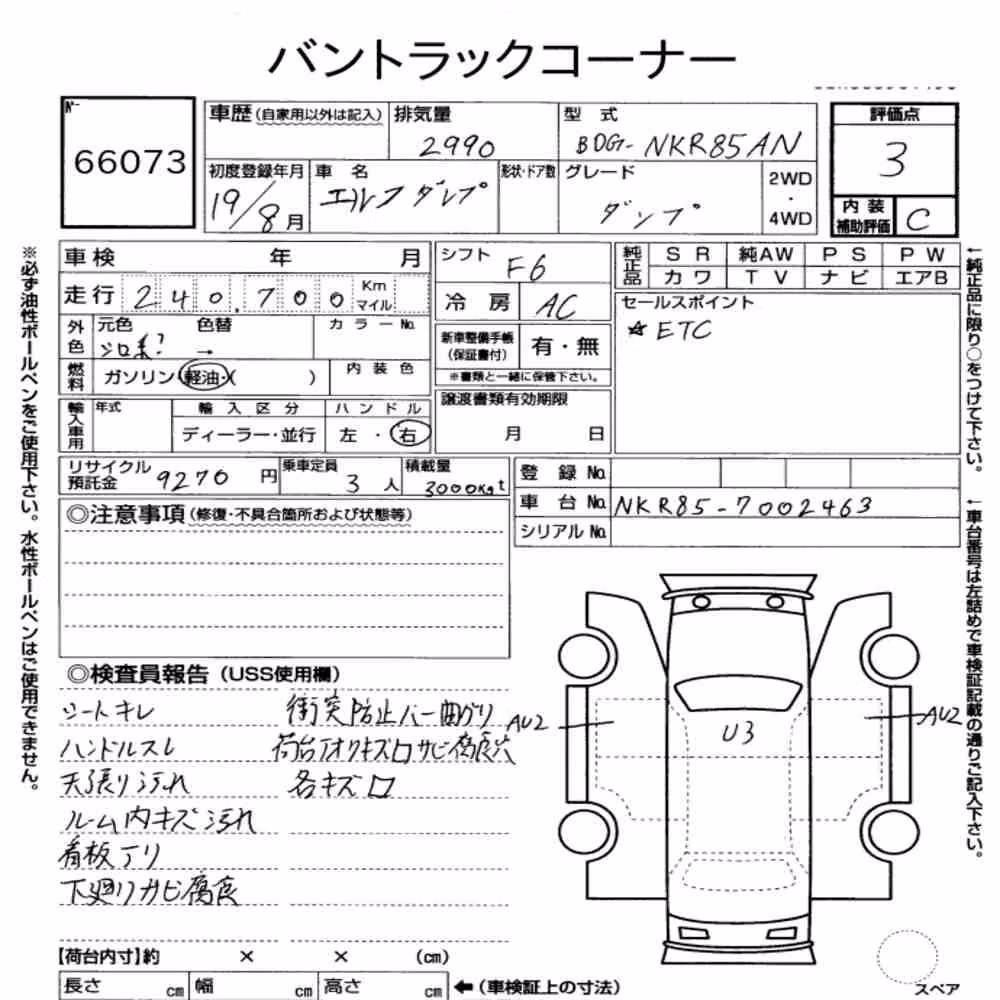 バントラックコーナー
No.
66073
車歴(自家用以外は記入)
排気量
2990
型式
BDG-NKR85AN
評価点
3
初度登録年月
19/8月
車名
エルフダンプ
形状・ドア数
グレード
ダンプ
2WD
・
4WD
内装
補助評価
C
車検 年 月
シフト
F6
純正品
SR 純AW PS PW
カワ TV ナビ エアB
走行 240,700 Km
マイル
冷房 AC
セールスポイント
☆ETC
外色
元色 色替
シロ系? →
カラーNo.
新車整備手帳
(保証書付)
有・無
※書類と一緒に保管下さい。
燃料
ガソリン・軽油・( )
内装色
譲渡書類有効期限
月 日
輸入車用
年式
輸入区分
ディーラー・並行
ハンドル
左・右
リサイクル
預託金
9270円
乗車定員
3人
積載量
3000kg t
登録No.
車台No. NKR85-7002463
シリアルNo.
◎注意事項(修復・不具合箇所および状態等)
◎検査員報告(USS使用欄)
シートキレ
ハンドルスレ
天張り汚れ
ルーム内キズ汚れ
看板アリ
下廻りサビ腐食
衝突防止バー曲がり
荷台アオリキズ凹サビ腐食穴
各キズ凹
AU2
U3
AU2
【荷台内寸】約 × × (cm)
長さ cm
幅 cm
高さ cm
←(車検証上の寸法)
スペア
※必ず油性ボールペンをご使用下さい。水性ボールペンはご使用できません。
←純正品に限り○をつけて下さい。
←車台番号は左詰めで車検証記載の通りご記入下さい。